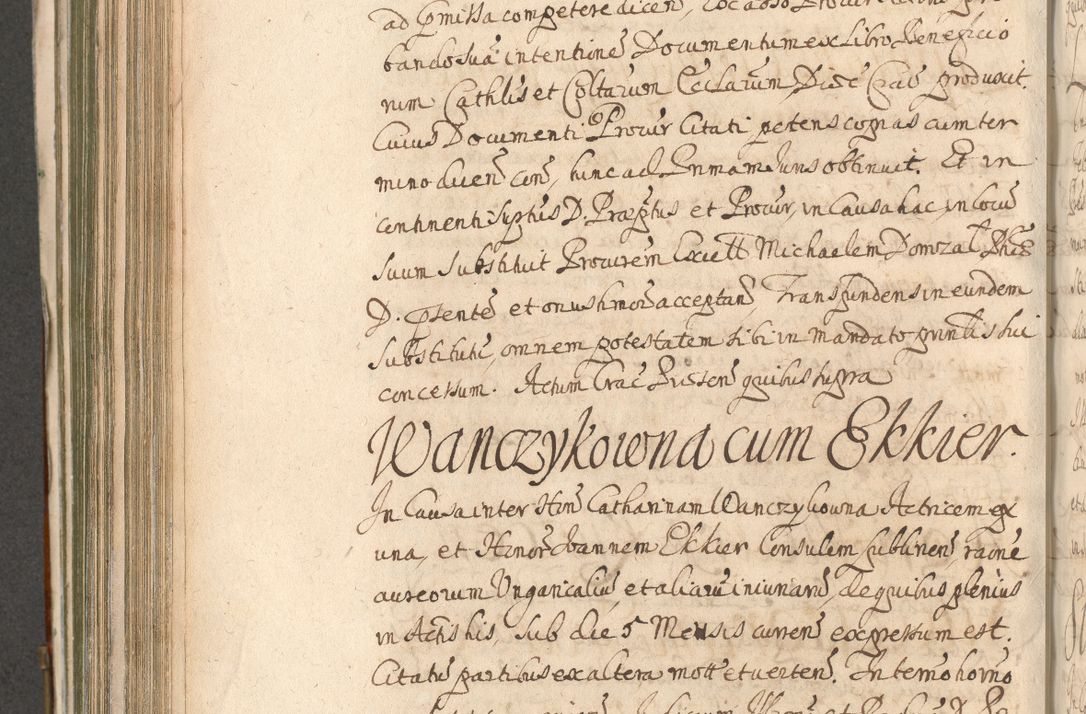 ad pmissa competere dicen,
bando suā intentionē Documentum ex Libro Beneficio
rum Cathlis et Coltarum Ecclarūm Diæc Crac produxit.
Cuius Documenti Procur Citati petens copias cum ter
mino dicen con, hinc ad Primam Iuris obtinuit. Et in
continenti suptus D. Præptus et Procur, in Causa hac, in locū
suum substituit Procurem Excell Michaelem Domzal
D. psente et onus hmoi acceptan, Transfundens in eundem
substitutū, omnem potestatem sibi in mandato prinlis sui
concessum. Actum Crac Pntten quibus supra
Wanczykowna cum Ekkier.
In Causa inter Hon Catharinam Wanczykowna Actricem ex
una, et Honor Ioannem Ekkier Consulem Lublinen, raone
aureorum Ungaricaliū, et aliarū iniuriarū, de quibus plenius
in Actis his, sub die 5 Mensis curren expressum est.
Citatū partibus ex altera mott et verten. In termo horno